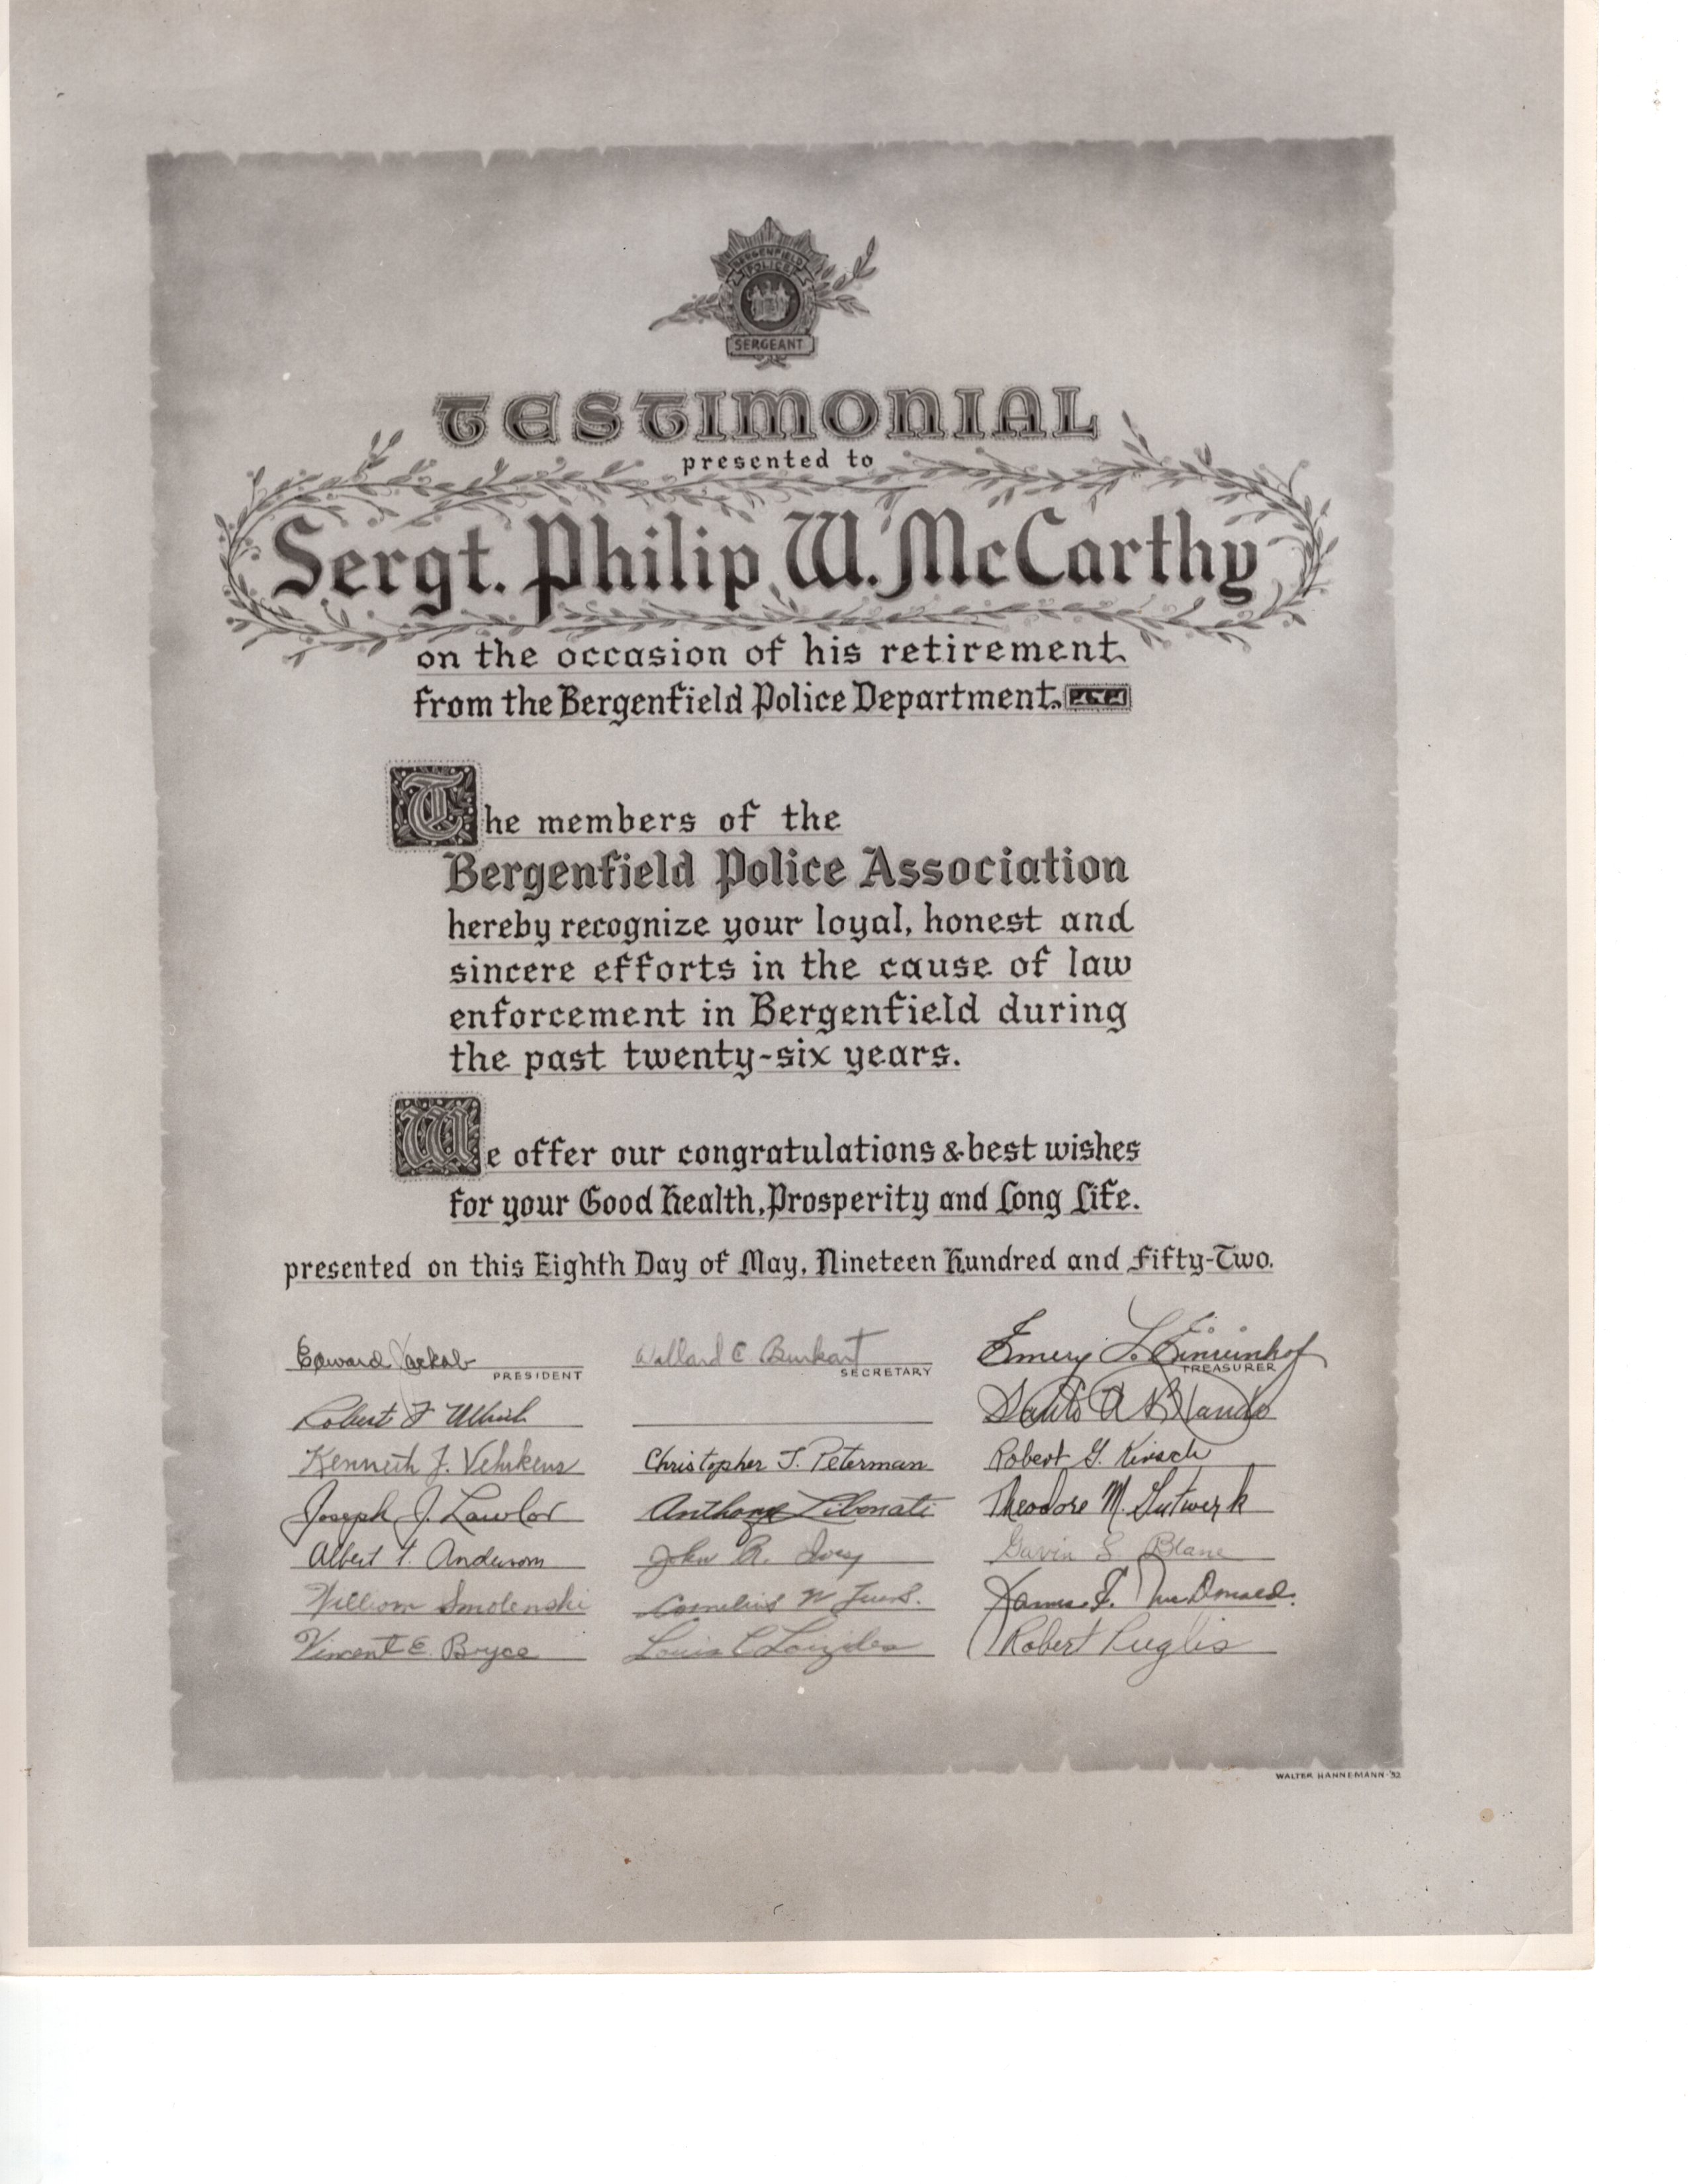 BERGENFIELD
POLICE
SERGEANT
TESTIMONIAL
presented to
Sergt. Philip W. McCarthy
on the occasion of his retirement
from the Bergenfield Police Department.
The members of the
Bergenfield Police Association
hereby recognize your loyal, honest and
sincere efforts in the cause of law
enforcement in Bergenfield during
the past twenty-six years.
We offer our congratulations & best wishes
for your Good Health, Prosperity and Long Life.
presented on this Eighth Day of May, Nineteen Hundred and Fifty-Two.
Edward Willard C. Burkart Emery L.
PRESIDENT SECRETARY TREASURER
Robert F Ullrich A Blando
Kenneth J. Vehrkens Christopher J. Peterman Robert G. Kirsch
Joseph J. Lawlor Anthony Libonati Theodore M. Gutwerk
Albert Anderson John R. Ivey Gavin S. Blane
William Smolenski Cornelius W James F. McDonald.
Vincent E. Bryce Louis C Loizides Robert Puglis
WALTER HANNEMANN-'52